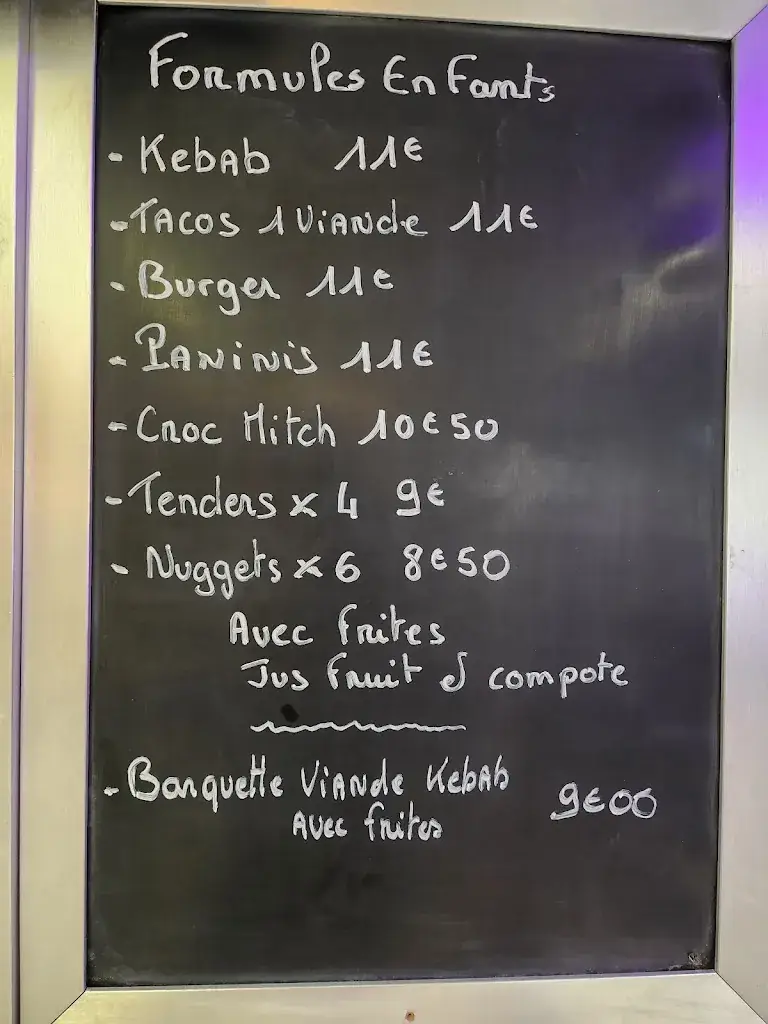 Formules Enfants
- Kebab 11€
- Tacos 1 Viande 11€
- Burger 11€
- Paninis 11€
- Croc Mitch 10€50
- Tenders x 4 9€
- Nuggets x 6 8€50
Avec frites
Jus fruit & compote
- Barquette Viande Kebab 9€00
Avec frites